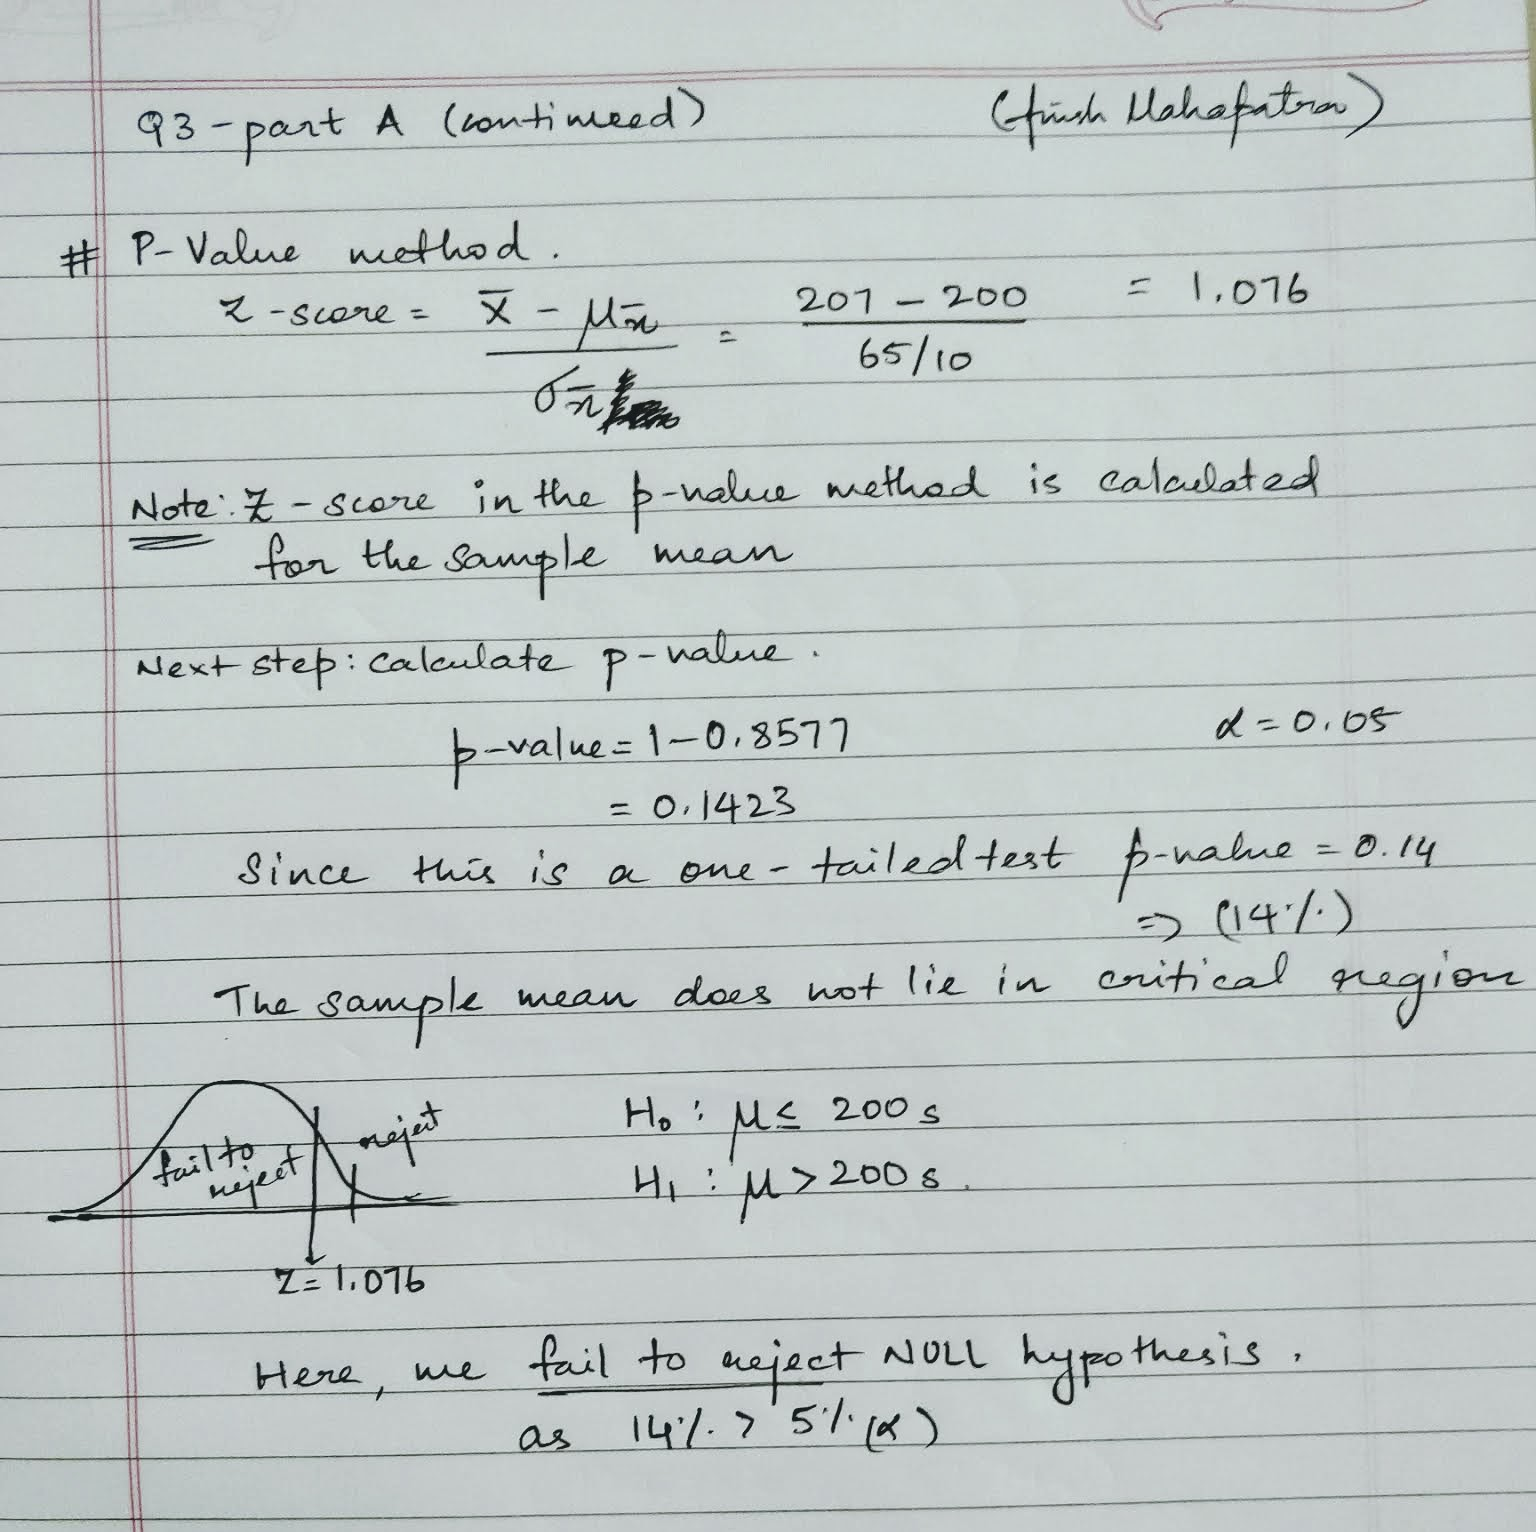 Q3-part A (continueed)
Mahapatra)
# P-Value method.
Z-score = x̄ - μx̄ / σx̄ = 207 - 200 / 65/10 = 1.076
Note: Z-score in the p-value method is calculated
for the sample mean
Next step: calculate p-value.
p-value = 1-0.8577
α = 0.05
= 0.1423
Since this is a one-tailed test p-value = 0.14
=> (14%)
The sample mean does not lie in critical region
fail to
reject
reject
Z = 1.076
H₀ : μ ≤ 200 s
H₁ : μ > 200 s.
Here, we fail to reject NULL hypothesis.
as 14% > 5% (α)